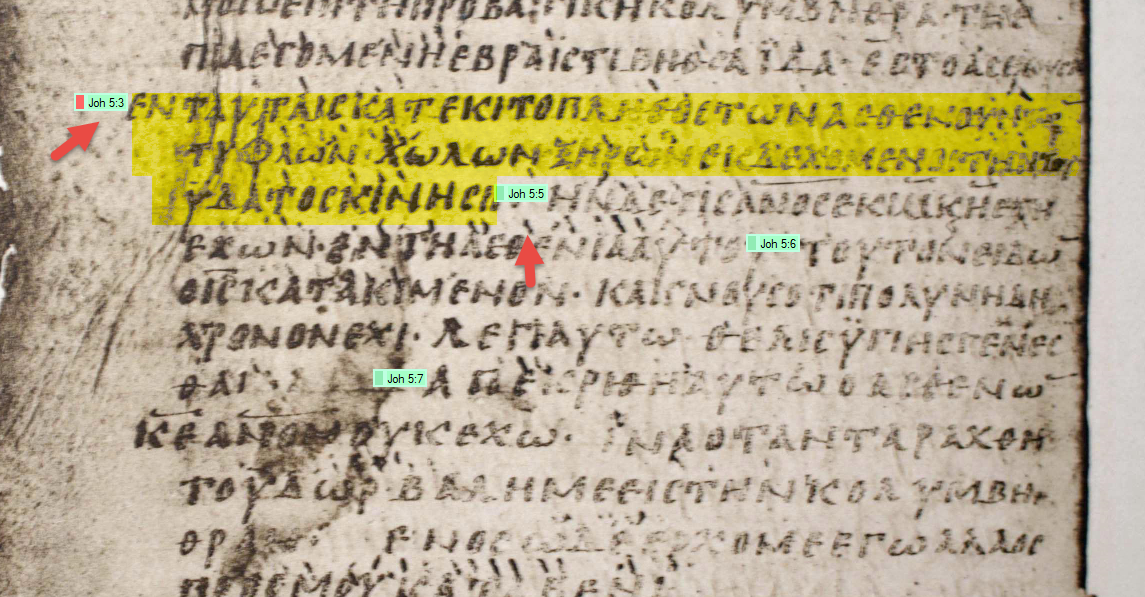 ΠΙΛΕΓΟΜΕΝΗΕΒΡΑΙϹΤΙΒΗΘϹΑΪΔΑ·
Joh 5:3 ΕΝΤΑΥΤΑΙϹΚΑΤΕΚΙΤΟΠΛΗΘΟϹΤΩΝΑϹΘΕΝΟΥΝΤΩ
ΤΥΦΛΩΝ·ΧΩΛΩΝ·ΞΗΡΩΝ
ΥΔΑΤΟϹΚΙΝΗϹΙ Joh 5:5 ΗΝΔΕΤΙϹΑΝΟϹΕΚΙ
ΕΧΩΝ·ΕΝΤΗΑϹΘΕΝΙΑΑΥΤΟΥ Joh 5:6 ΤΟΥΤΟΝΕΙΔΩ
ΟΙϹΚΑΤΑΚΙΜΕΝΟΝ· ΚΑΙΓΝΟΥϹΟΤΙΠΟΛΥΝΗΔΗ
ΧΡΟΝΟΝΕΧΙ· ΛΕΓΙΑΥΤΩ·ΘΕΛΙϹΫΓΙΗϹΓΕΝΕϹ
ΘΑΙ Joh 5:7 ΑΠΕΚΡΙΘΗΑΥΤΩΟΑϹΘΕΝΩ
ΚΕΑΝΟΝΟΥΚΕΧΩ· ΪΝΑΟΤΑΝΤΑΡΑΧΘΗ
ΤΟΥΔΩΡ·ΒΑΛΗΜΕΕΙϹΤΗΝΚΟΛΥΜΒΗ
ΘΡΑΝ· ΕΝΟϹΩΔΕΕΡΧΟΜΕΕΓΩΑΛΛΟϹ